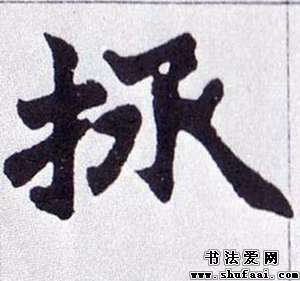 拯
书法爱网
www.shufaai.com